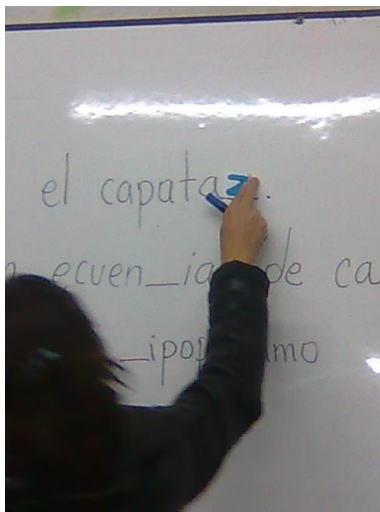 el capataz.
ecuen_ia de ca
_ipo mo